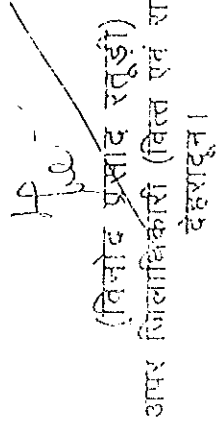 (विनोद प्रसाद रतूड़ी)
अपर जिलाधिकारी (वित्त एवं रा
देहरादून।